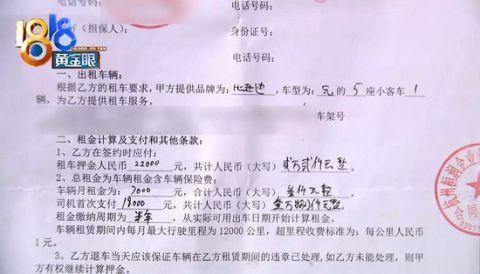 1818
黄金眼
电话号码:
电话号码:
方（担保人）:
身份证号:
电话号码:
一、出租车辆:
根据乙方的租车要求，甲方提供品牌为:比亚迪，车型为:元的5座小客车1
辆，为乙方提供租车服务。
车架号
二、租金计算及支付和其他条款:
1、乙方在签约时应付:
租车押金人民币22000元，共计人民币（大写）贰万贰仟元整
2、总租金为车辆租金含车辆保险费:
车辆月租金为:3000元，合计人民币（大写）叁仟元整
司机首次支付18000元，共计人民币（大写）壹万捌仟元整
租金缴纳周期为半年，从实际可用出车日期开始计算租金。
车辆租赁期间内每月最大行驶里程为12000公里，超里程收费标准为:每公里人民币
1元。
3、乙方退车当天应该保证车辆在乙方租赁期间的违章已处理，如乙方未能处理，则甲
方有权继续计算押金。
杭州恒润企业
合同